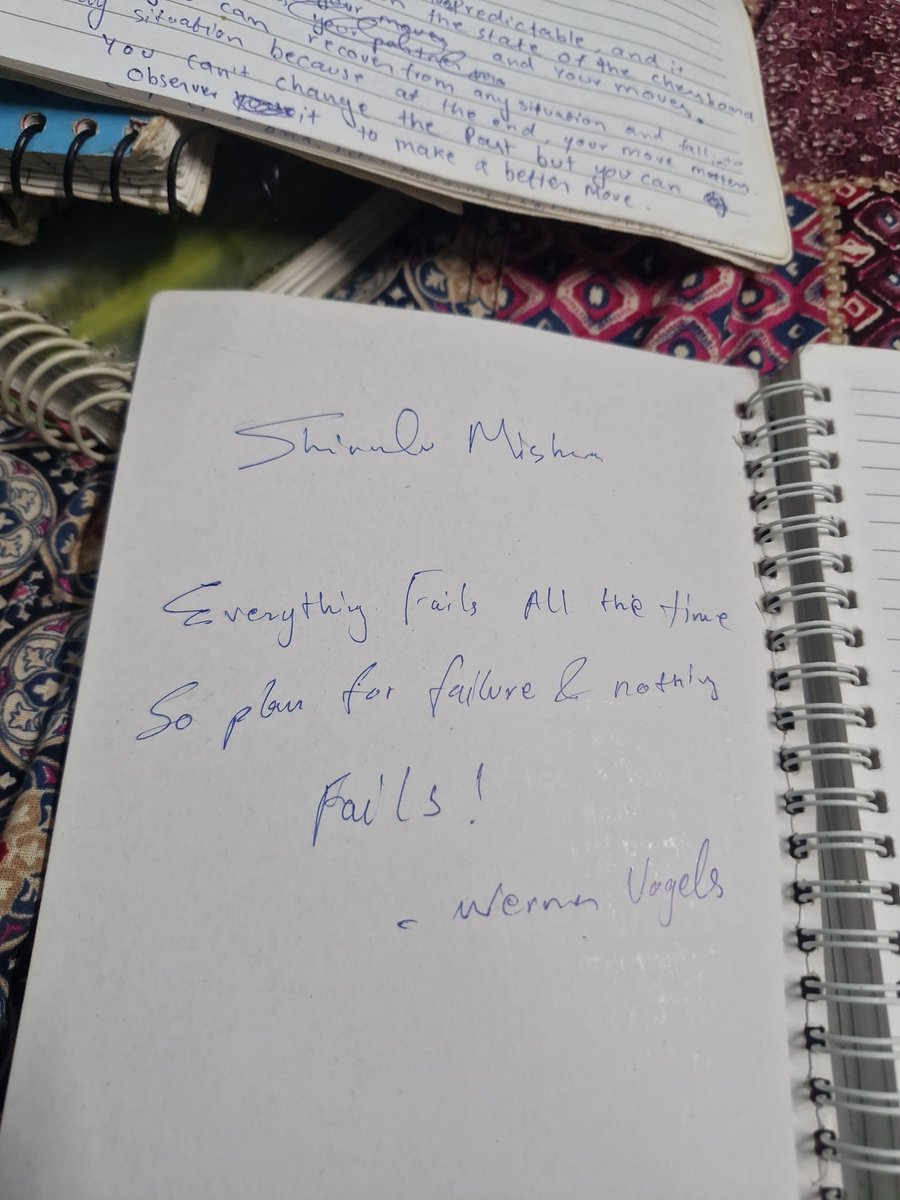 predictable, and it
the state of the chessboard
your moves and your moves.
can recover from any situation and fall into
situation because at the end, your move matters.
You can't change the Past but you can
Observer it to make a better move.
Mishra
Everything Fails All the time
So plan for failure & nothing
Fails!
- Werner Vogels